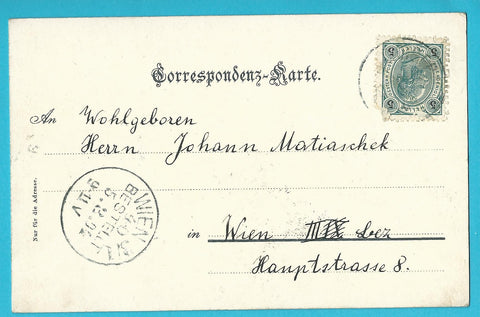 Correspondenz-Karte.
An Wohlgeboren
Herrn Johann Matiaschek
in Wien bez
Hauptstrasse 8.
Nur für die Adresse.
WIEN
BESTELLT
9-11 V
5
5
5
5